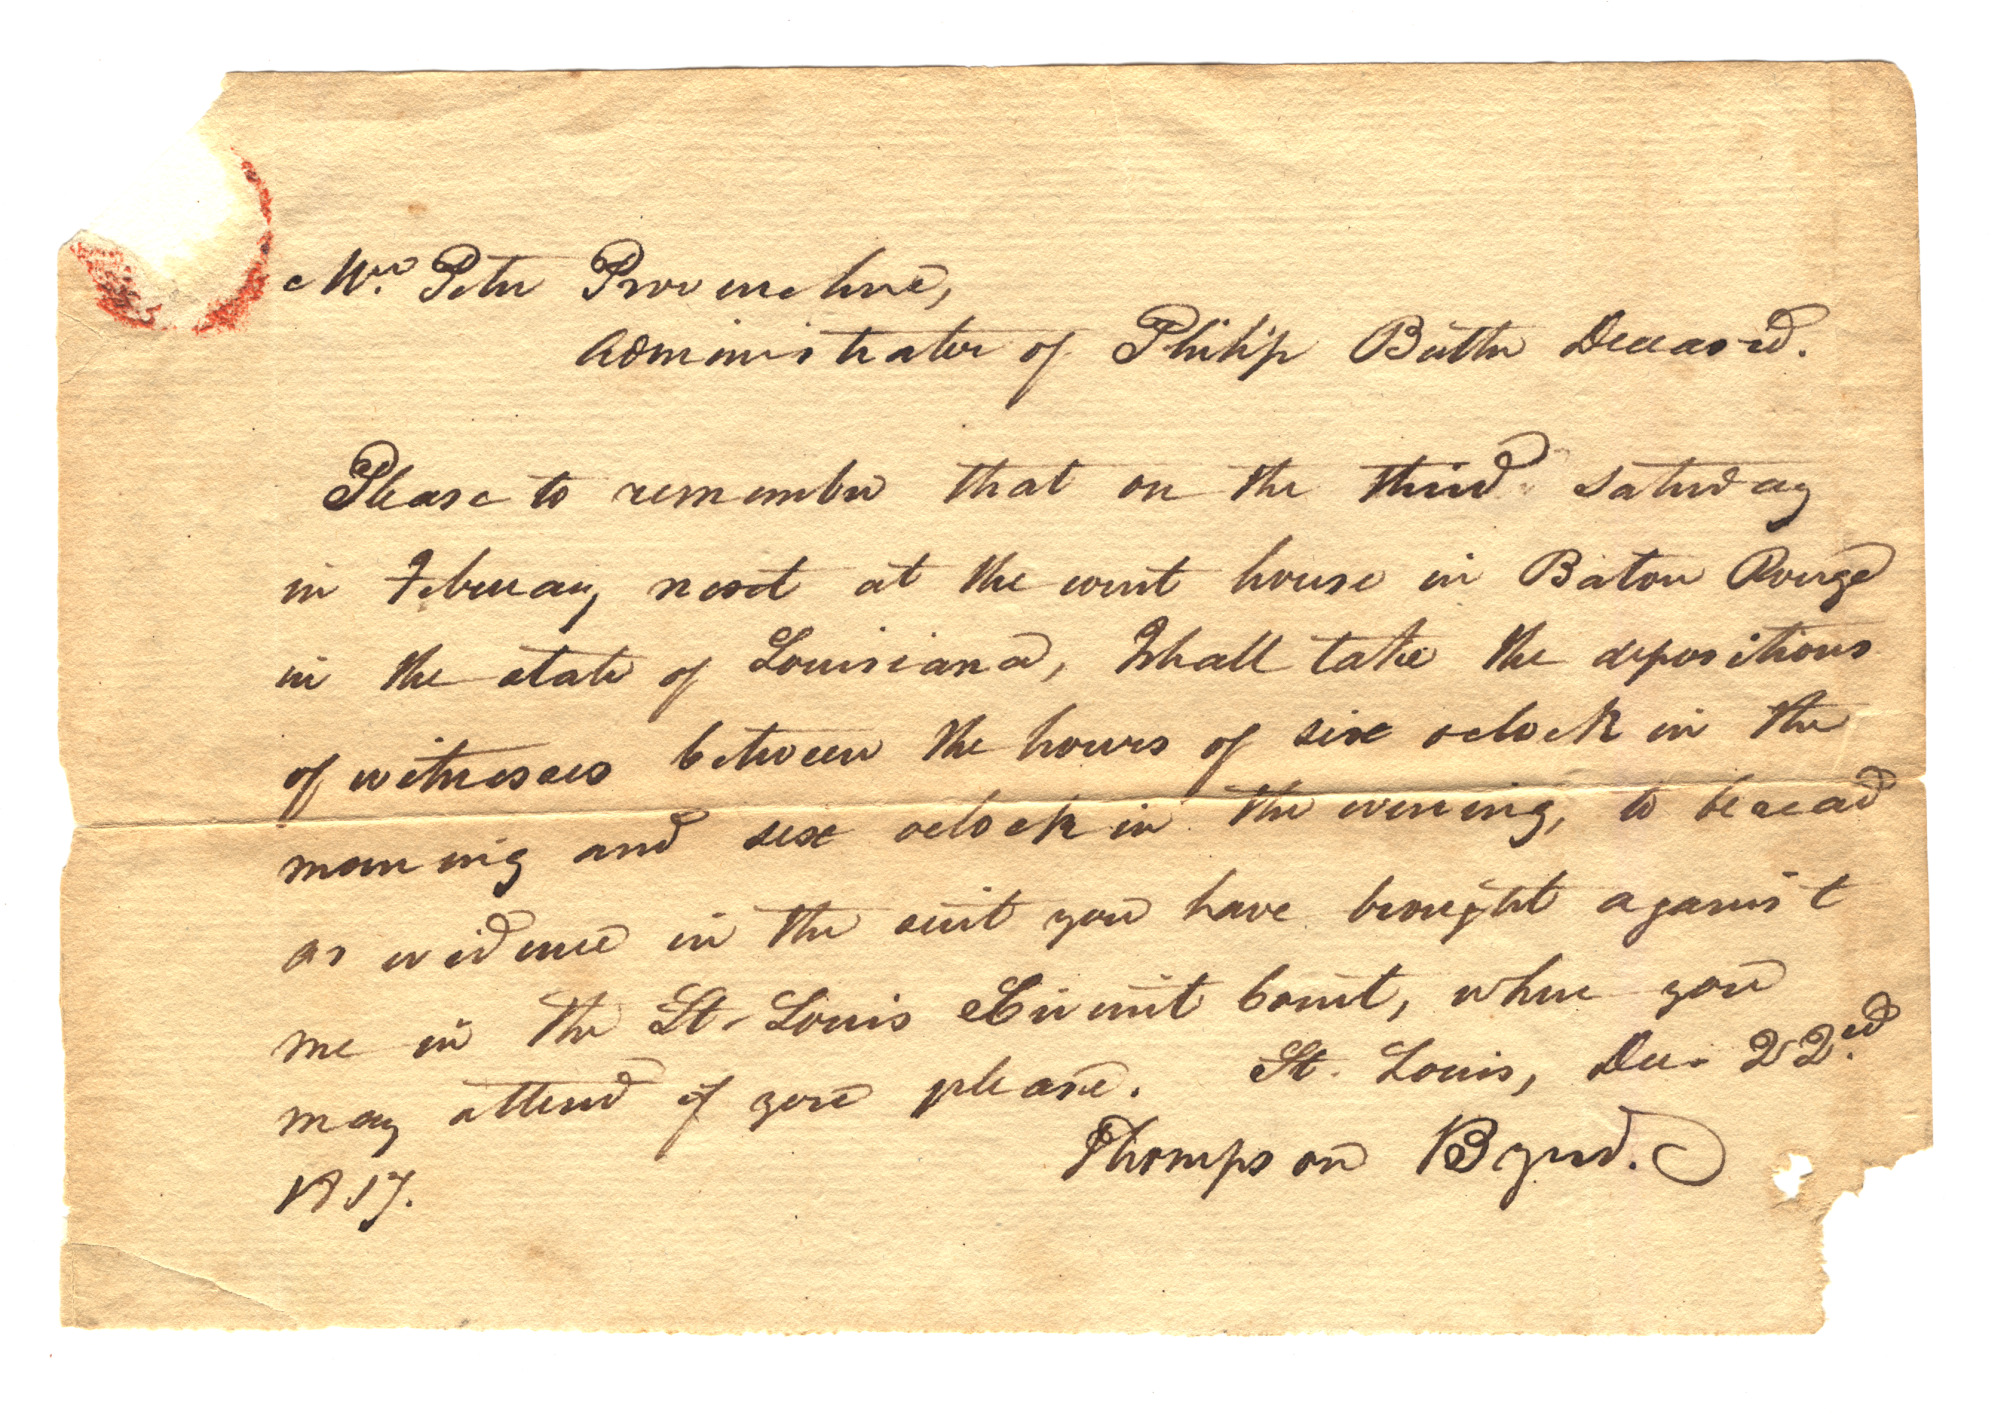 Mr. Peter Provenchere,
administrator of Philip Butter Deceased.
Please to remember that on the third Saturday
in February next at the court house in Baton Rouge
in the state of Louisiana, I shall take the depositions
of witnesses between the hours of six oclock in the
morning and six oclock in the evening, to be read
as evidence in the suit you have brought against
me in the St. Louis Circuit Court, where you
may attend if you please. St. Louis, Dec. 22ed
1817.
Thompson Byrd.